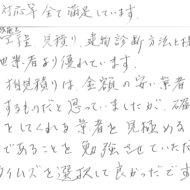 対応等全て満足しています。
、見積り、建物診断方法と
他業者より優れています。
相見積りは、金額の安い業者
するものだと思っていましたが、確
をしてくれる業者を見極める
であることを勉強させていただ
タイムズを選択して良かったです